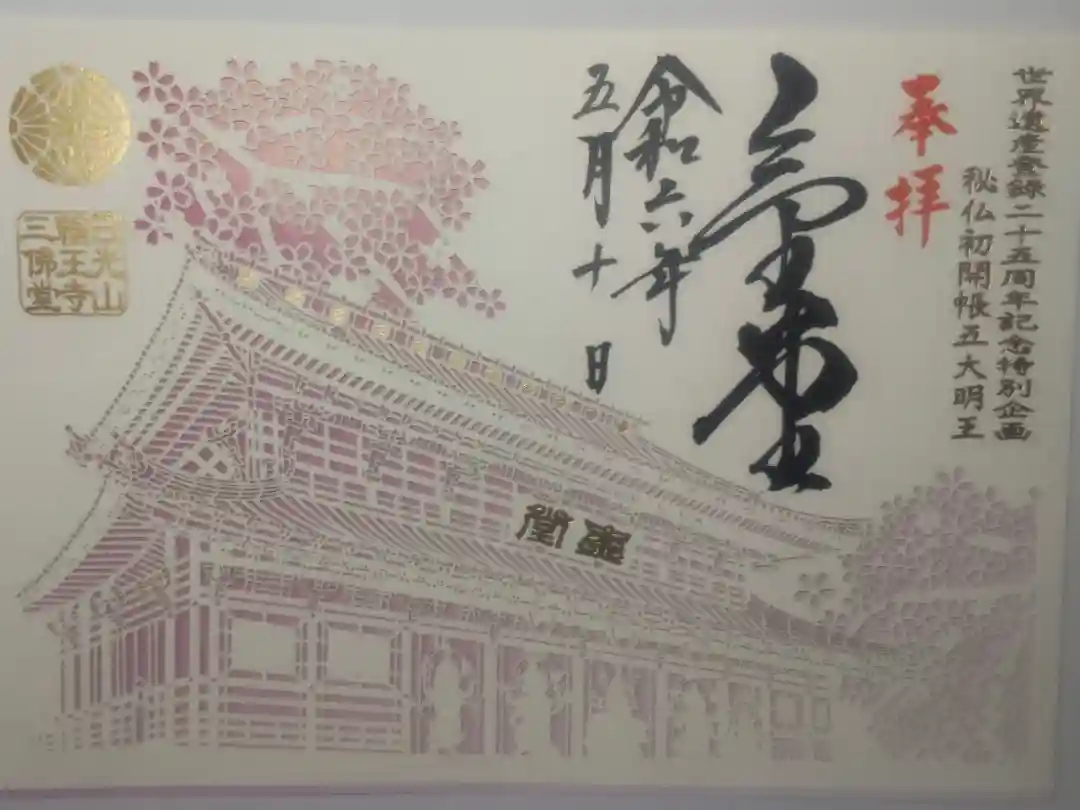 世界遺産登録二十五周年記念特別企画
秘仏初開帳五大明王
奉拝
金堂
令和六年
五月十日
日光山
輪王寺
三佛堂
金堂